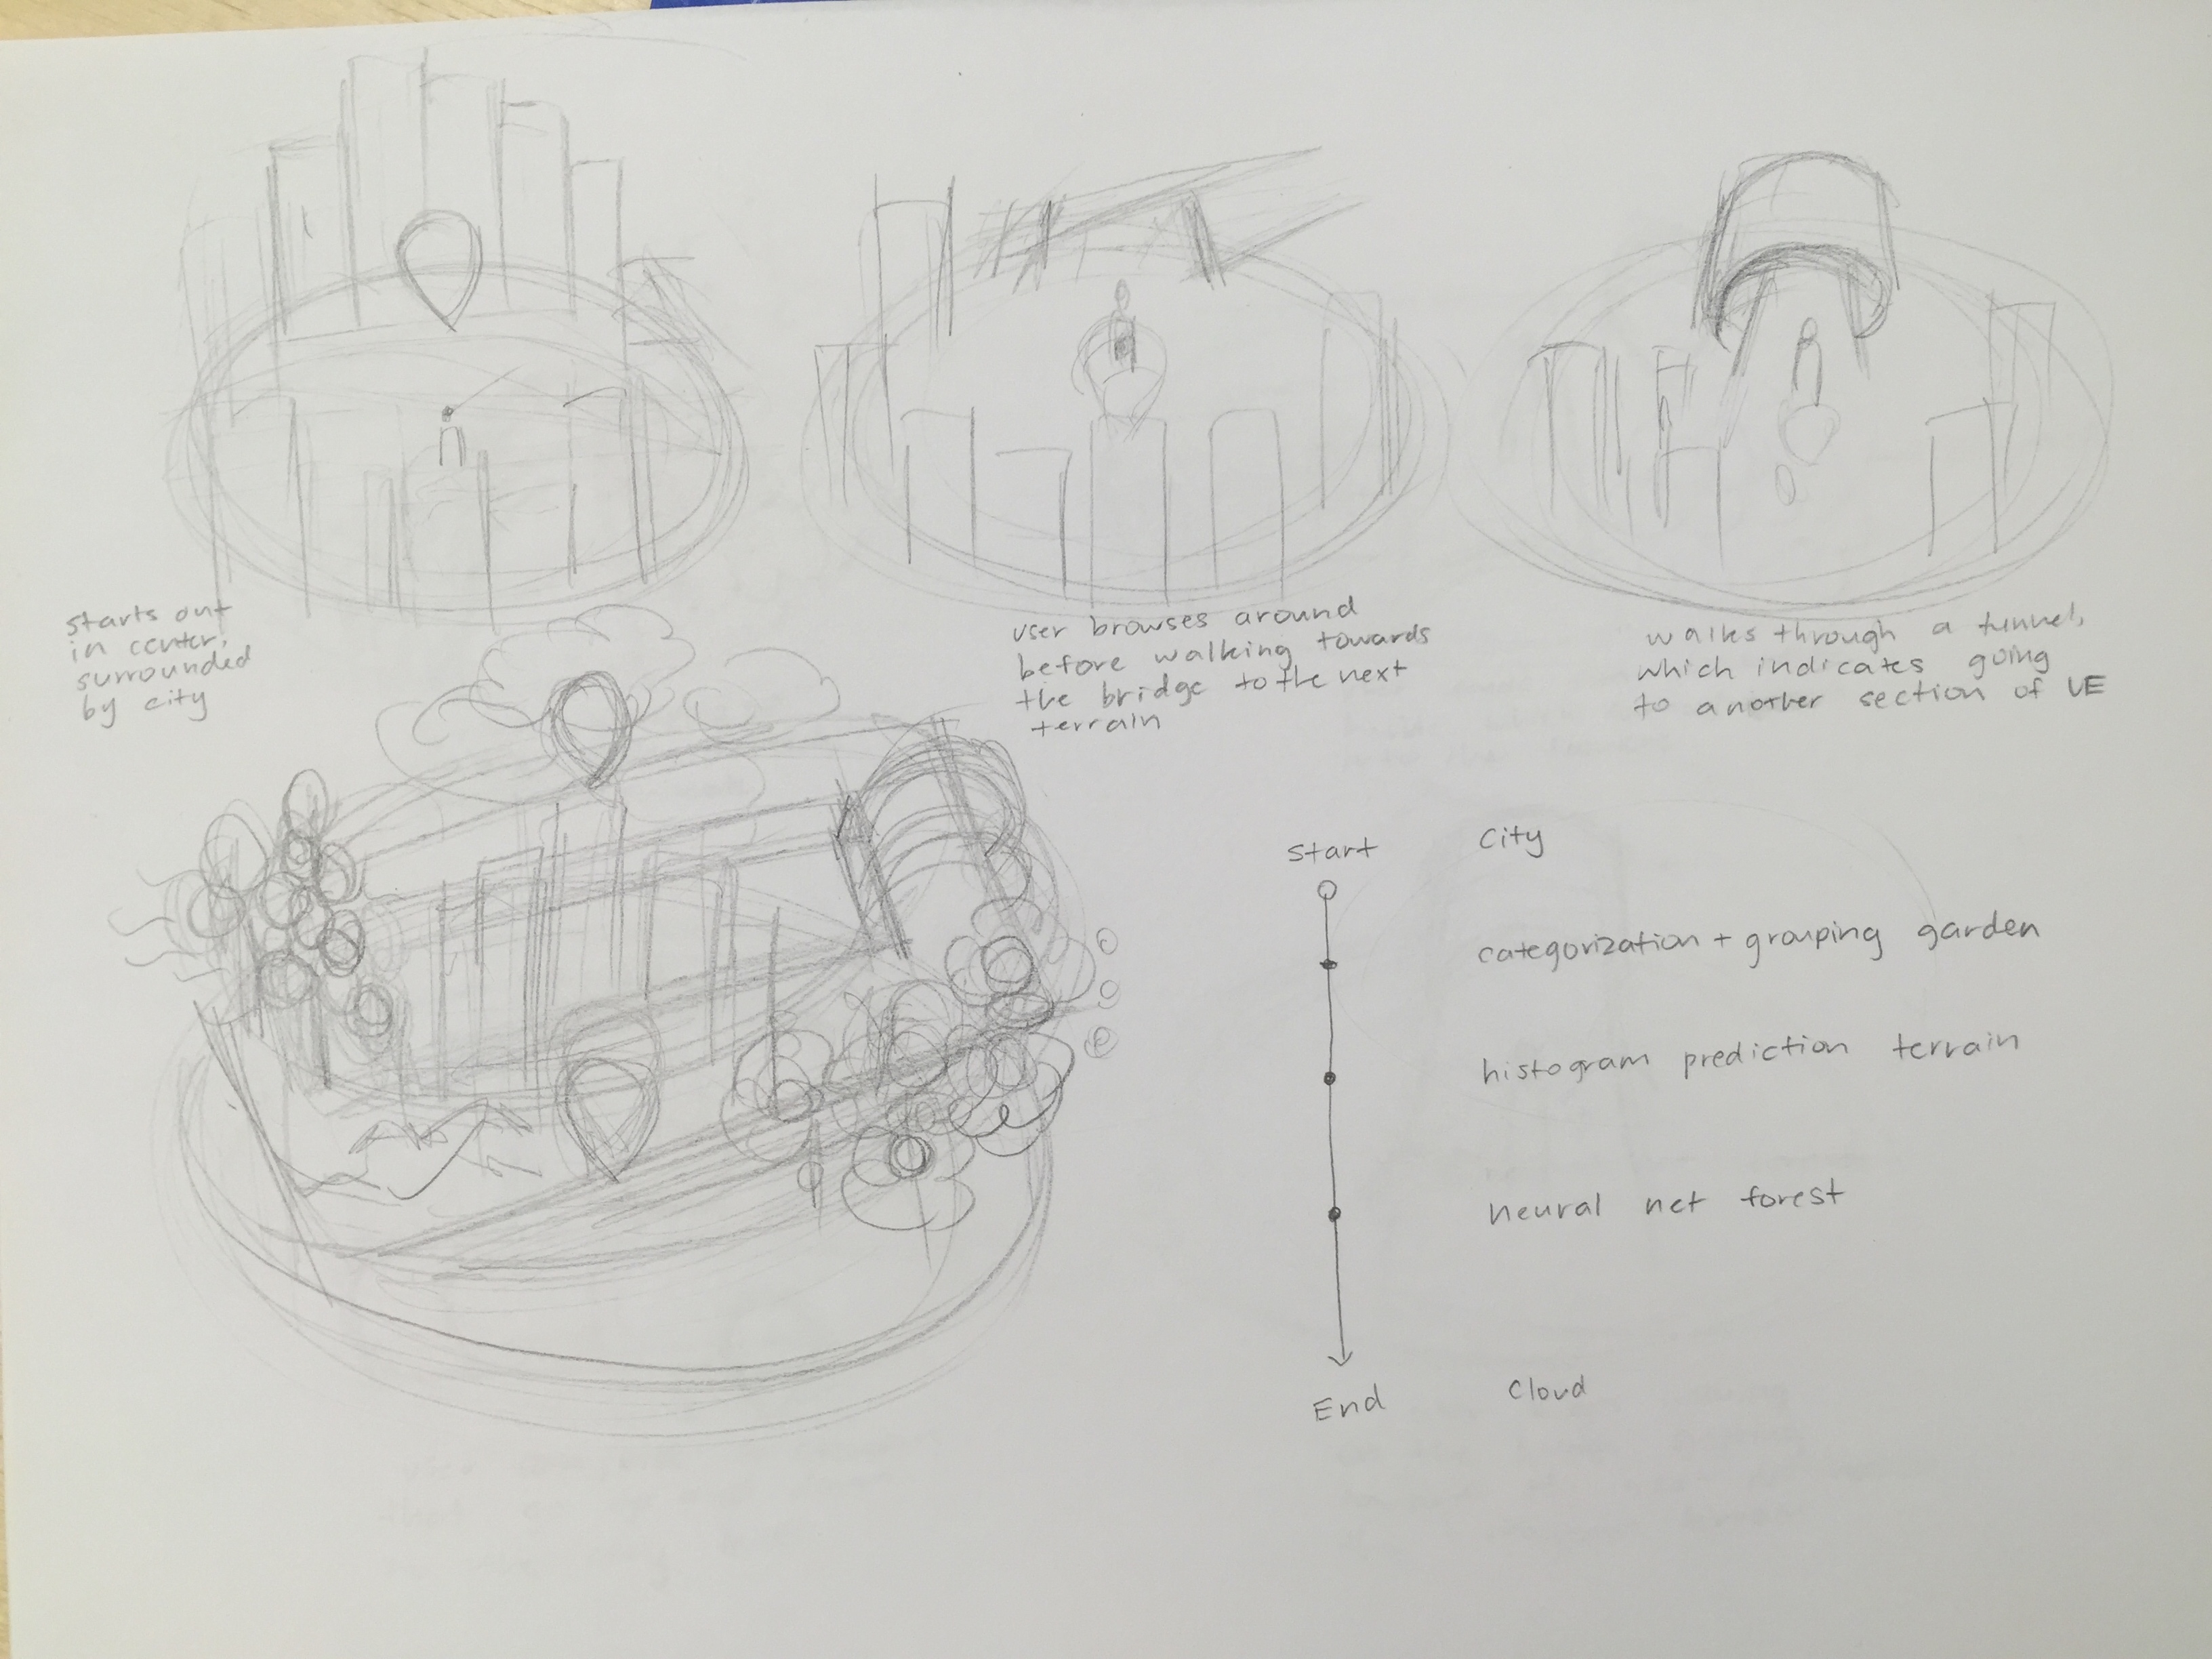 starts out
in center,
surrounded
by city
user browses around
before walking towards
the bridge to the next
terrain
walks through a tunnel,
which indicates going
to another section of VE
Start City
categorization + grouping garden
histogram prediction terrain
neural net forest
End Cloud